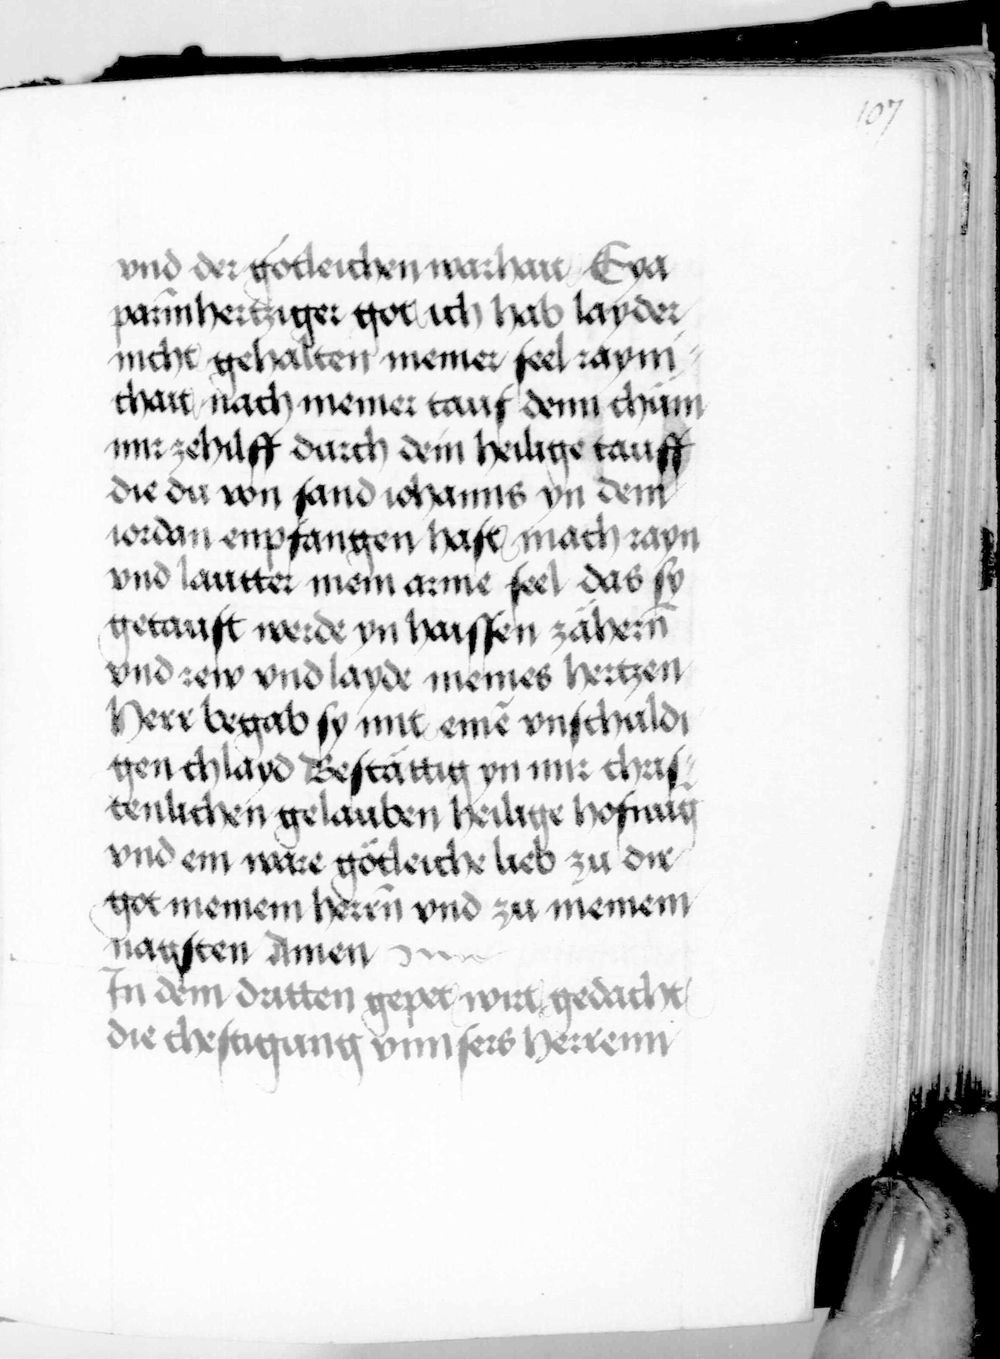 107
vnd der gotleichen warhait Eya
parm̄hertziger got ich hab layder
nicht gehalten meiner seel rayni
chait nach meiner tauf denn chüm
mir zehilff durch dein heilige tauff
die du von sand iohanns yn dem
iordan enpfangen hast mach rayn
vnd lautter mein arme seel das sy
getauft werde yn haissen zähern̄
vnd rew vnd layde meines hertzen
Herr begab sy mit einē vnschuldi
gen chlayd Bestättig yn mir chris
tenlichen gelauben heilige hofnung
vnd ein ware götleiche lieb zu dir
got meinem herrn̄ vnd zu meinem
nagsten Amen
In dem dritten gepet wirt gedacht
die chestigung vnnsers herrenn